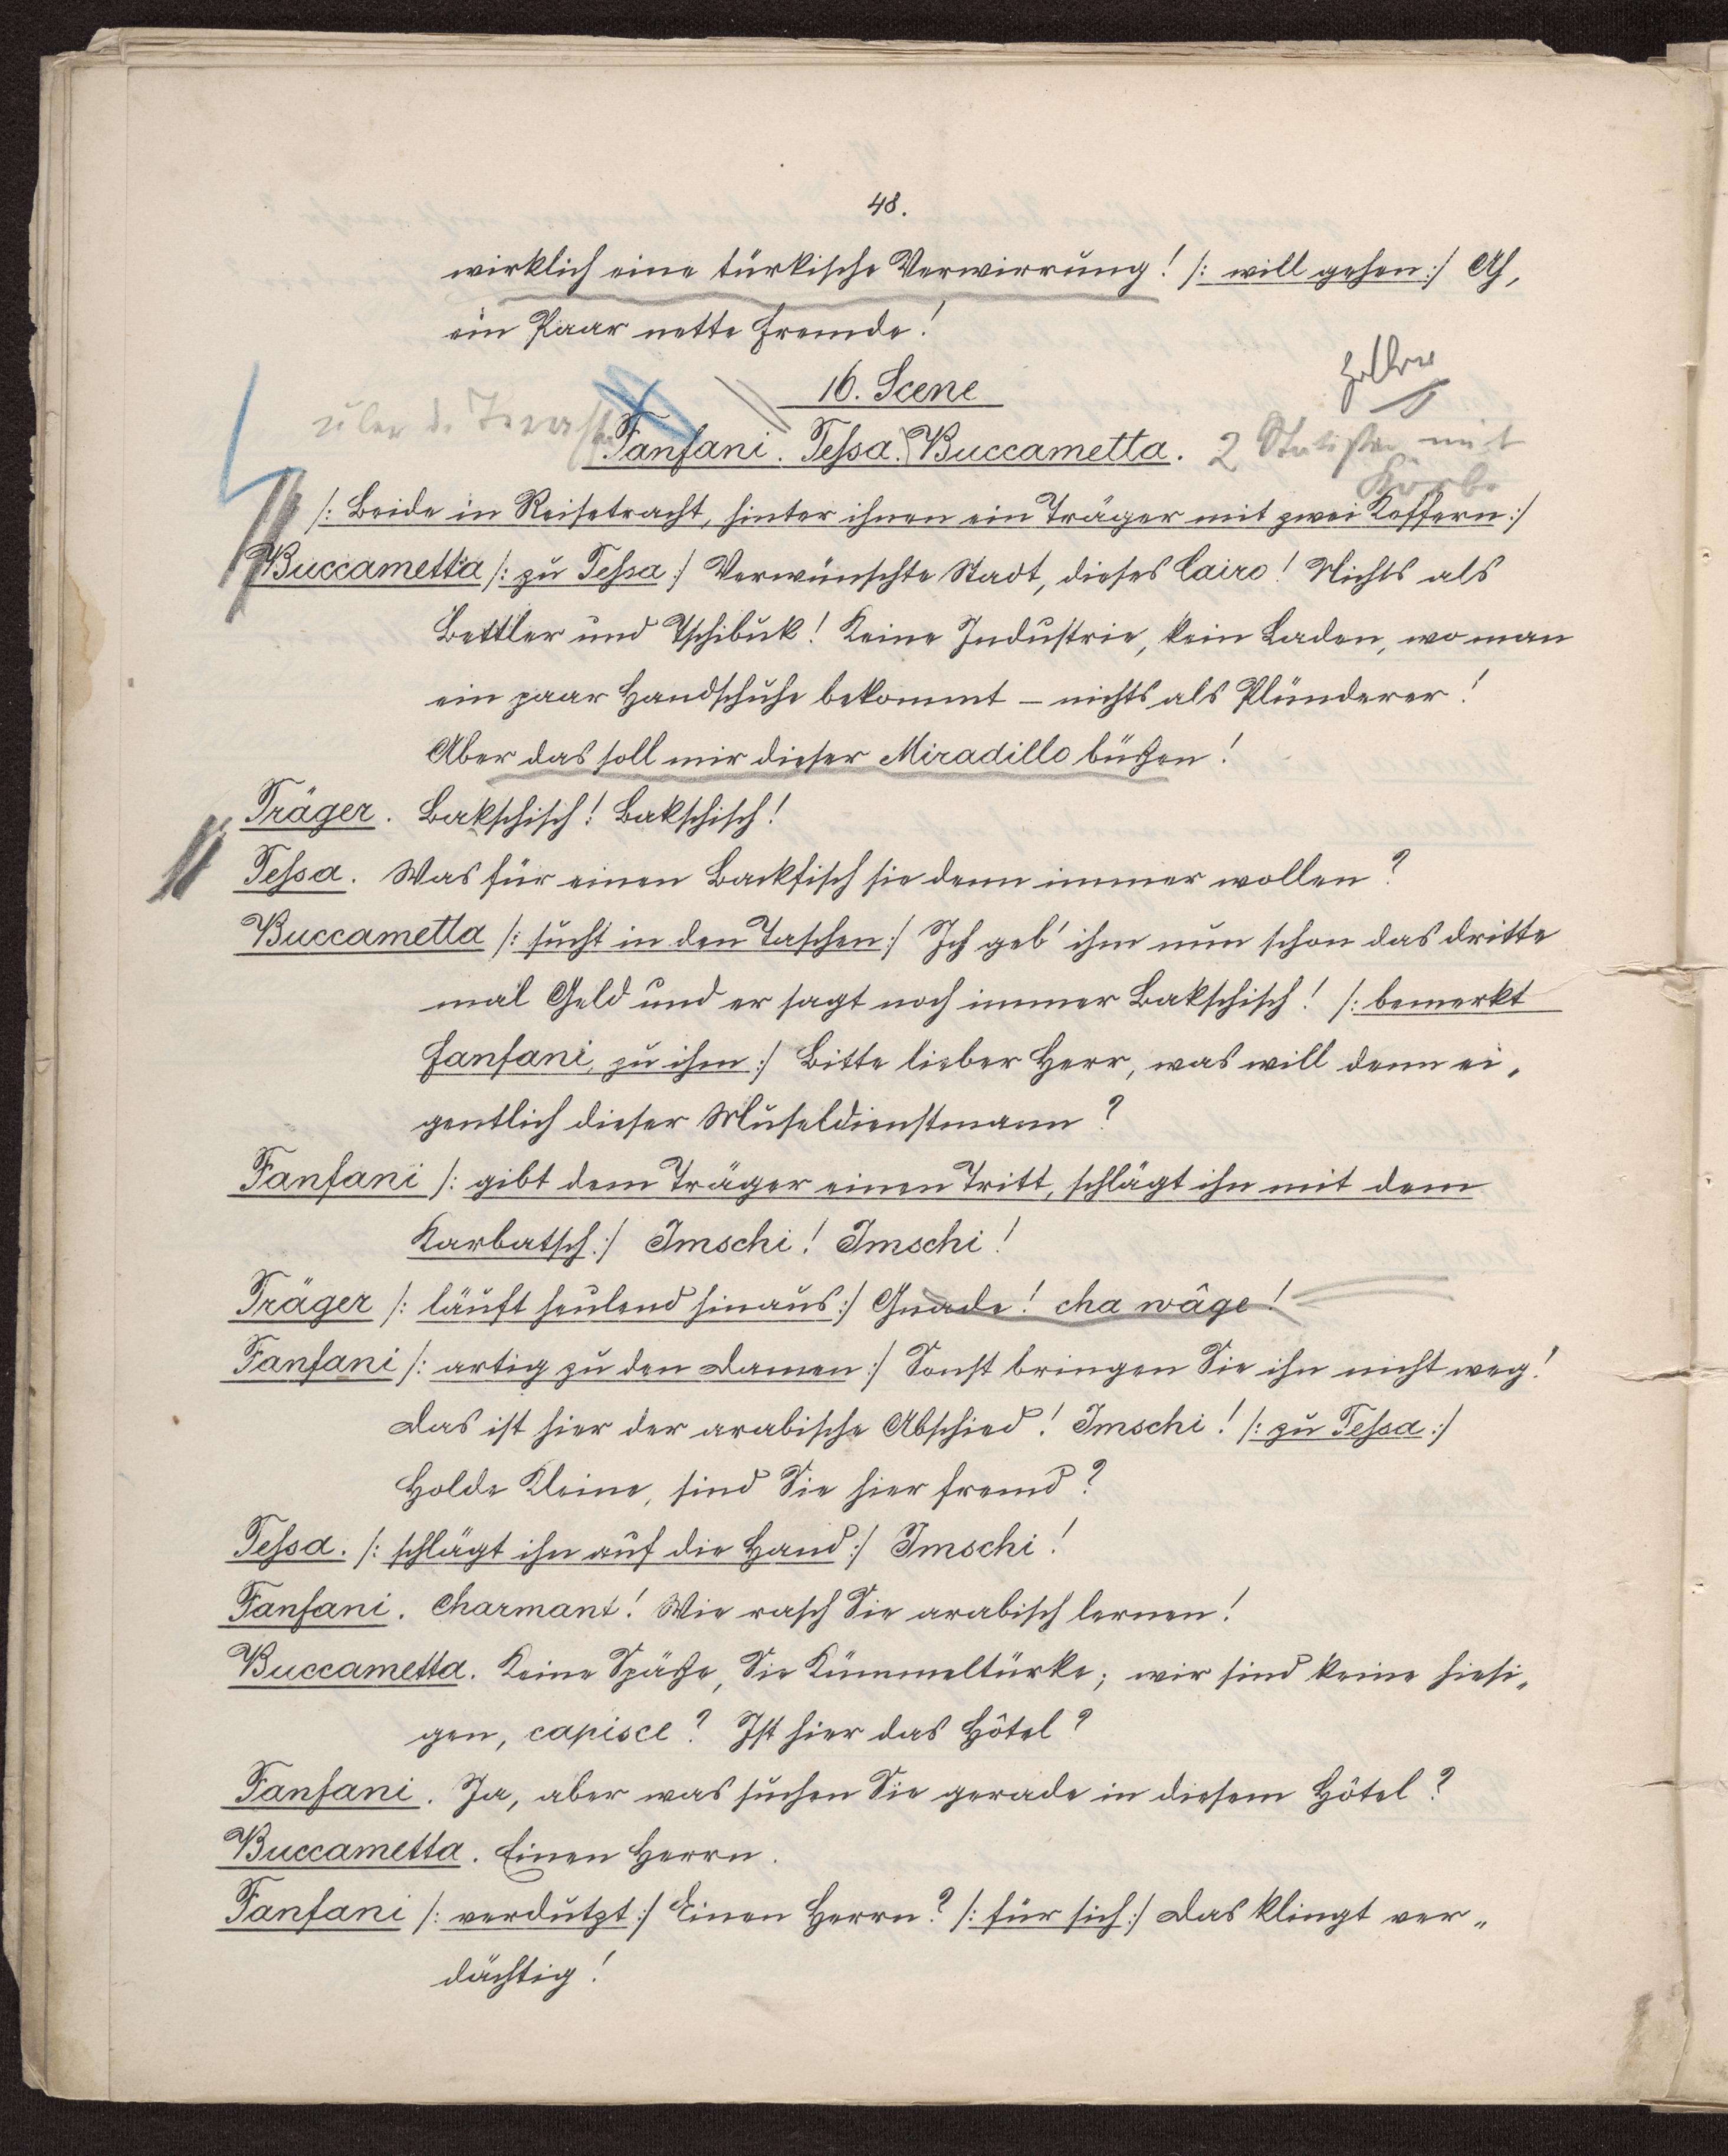 48.
wirklich eine türkische Verwirrung! /: will gehen :/ Ah,
ein Paar nette Fremde!
16. Scene
über d. Terasse
Fanfani. Tessa. Buccametta.
2 Statisten mit
Körbe
/: Beide in Reisetracht, hinter ihnen ein Träger mit zwei Koffern :/
Buccametta /: zu Tessa :/ Verwünschte Stadt, dieses Cairo! Nichts als
Bettler und Tschibuk! Keine Industrie, kein Laden, wo man
ein paar Handschuhe bekommt – nichts als Plünderer!
Aber das soll mir dieser Miradillo büßen!
Träger. Bakschisch! Bakschisch!
Tessa. Was für einen Backfisch sie denn immer wollen?
Buccametta /: sucht in den Taschen :/ Ich geb' ihm nun schon das dritte
mal Geld und er sagt noch immer Bakschisch! /: bemerkt
Fanfani, zu ihm :/ Bitte lieber Herr, was will denn ei„
gentlich dieser Museldienstmann?
Fanfani /: gibt dem Träger einen Tritt, schlägt ihn mit dem
Karbatsch :/ Imschi! Imschi!
Träger /: läuft heulend hinaus :/ Gnade! cha wâge!
Fanfani /: artig zu den Damen :/ Sonst bringen Sie ihn nicht weg!
Das ist hier der arabische Abschied! Imschi! /: zu Tessa :/
Holde Kleine, sind Sie hier fremd?
Tessa. /: schlägt ihn auf die Hand :/ Imschi!
Fanfani. Charmant! Wie rasch Sie arabisch lernen!
Buccametta. Keine Späße, Sie Kümmeltürke; wir sind keine hiesi„
gen, capisce? Ist hier das Hôtel?
Fanfani. Ja, aber was suchen Sie gerade in diesem Hôtel?
Buccametta. Einen Herrn.
Fanfani /: verdutzt :/ Einen Herrn? /: für sich :/ Das klingt ver„
dächtig!